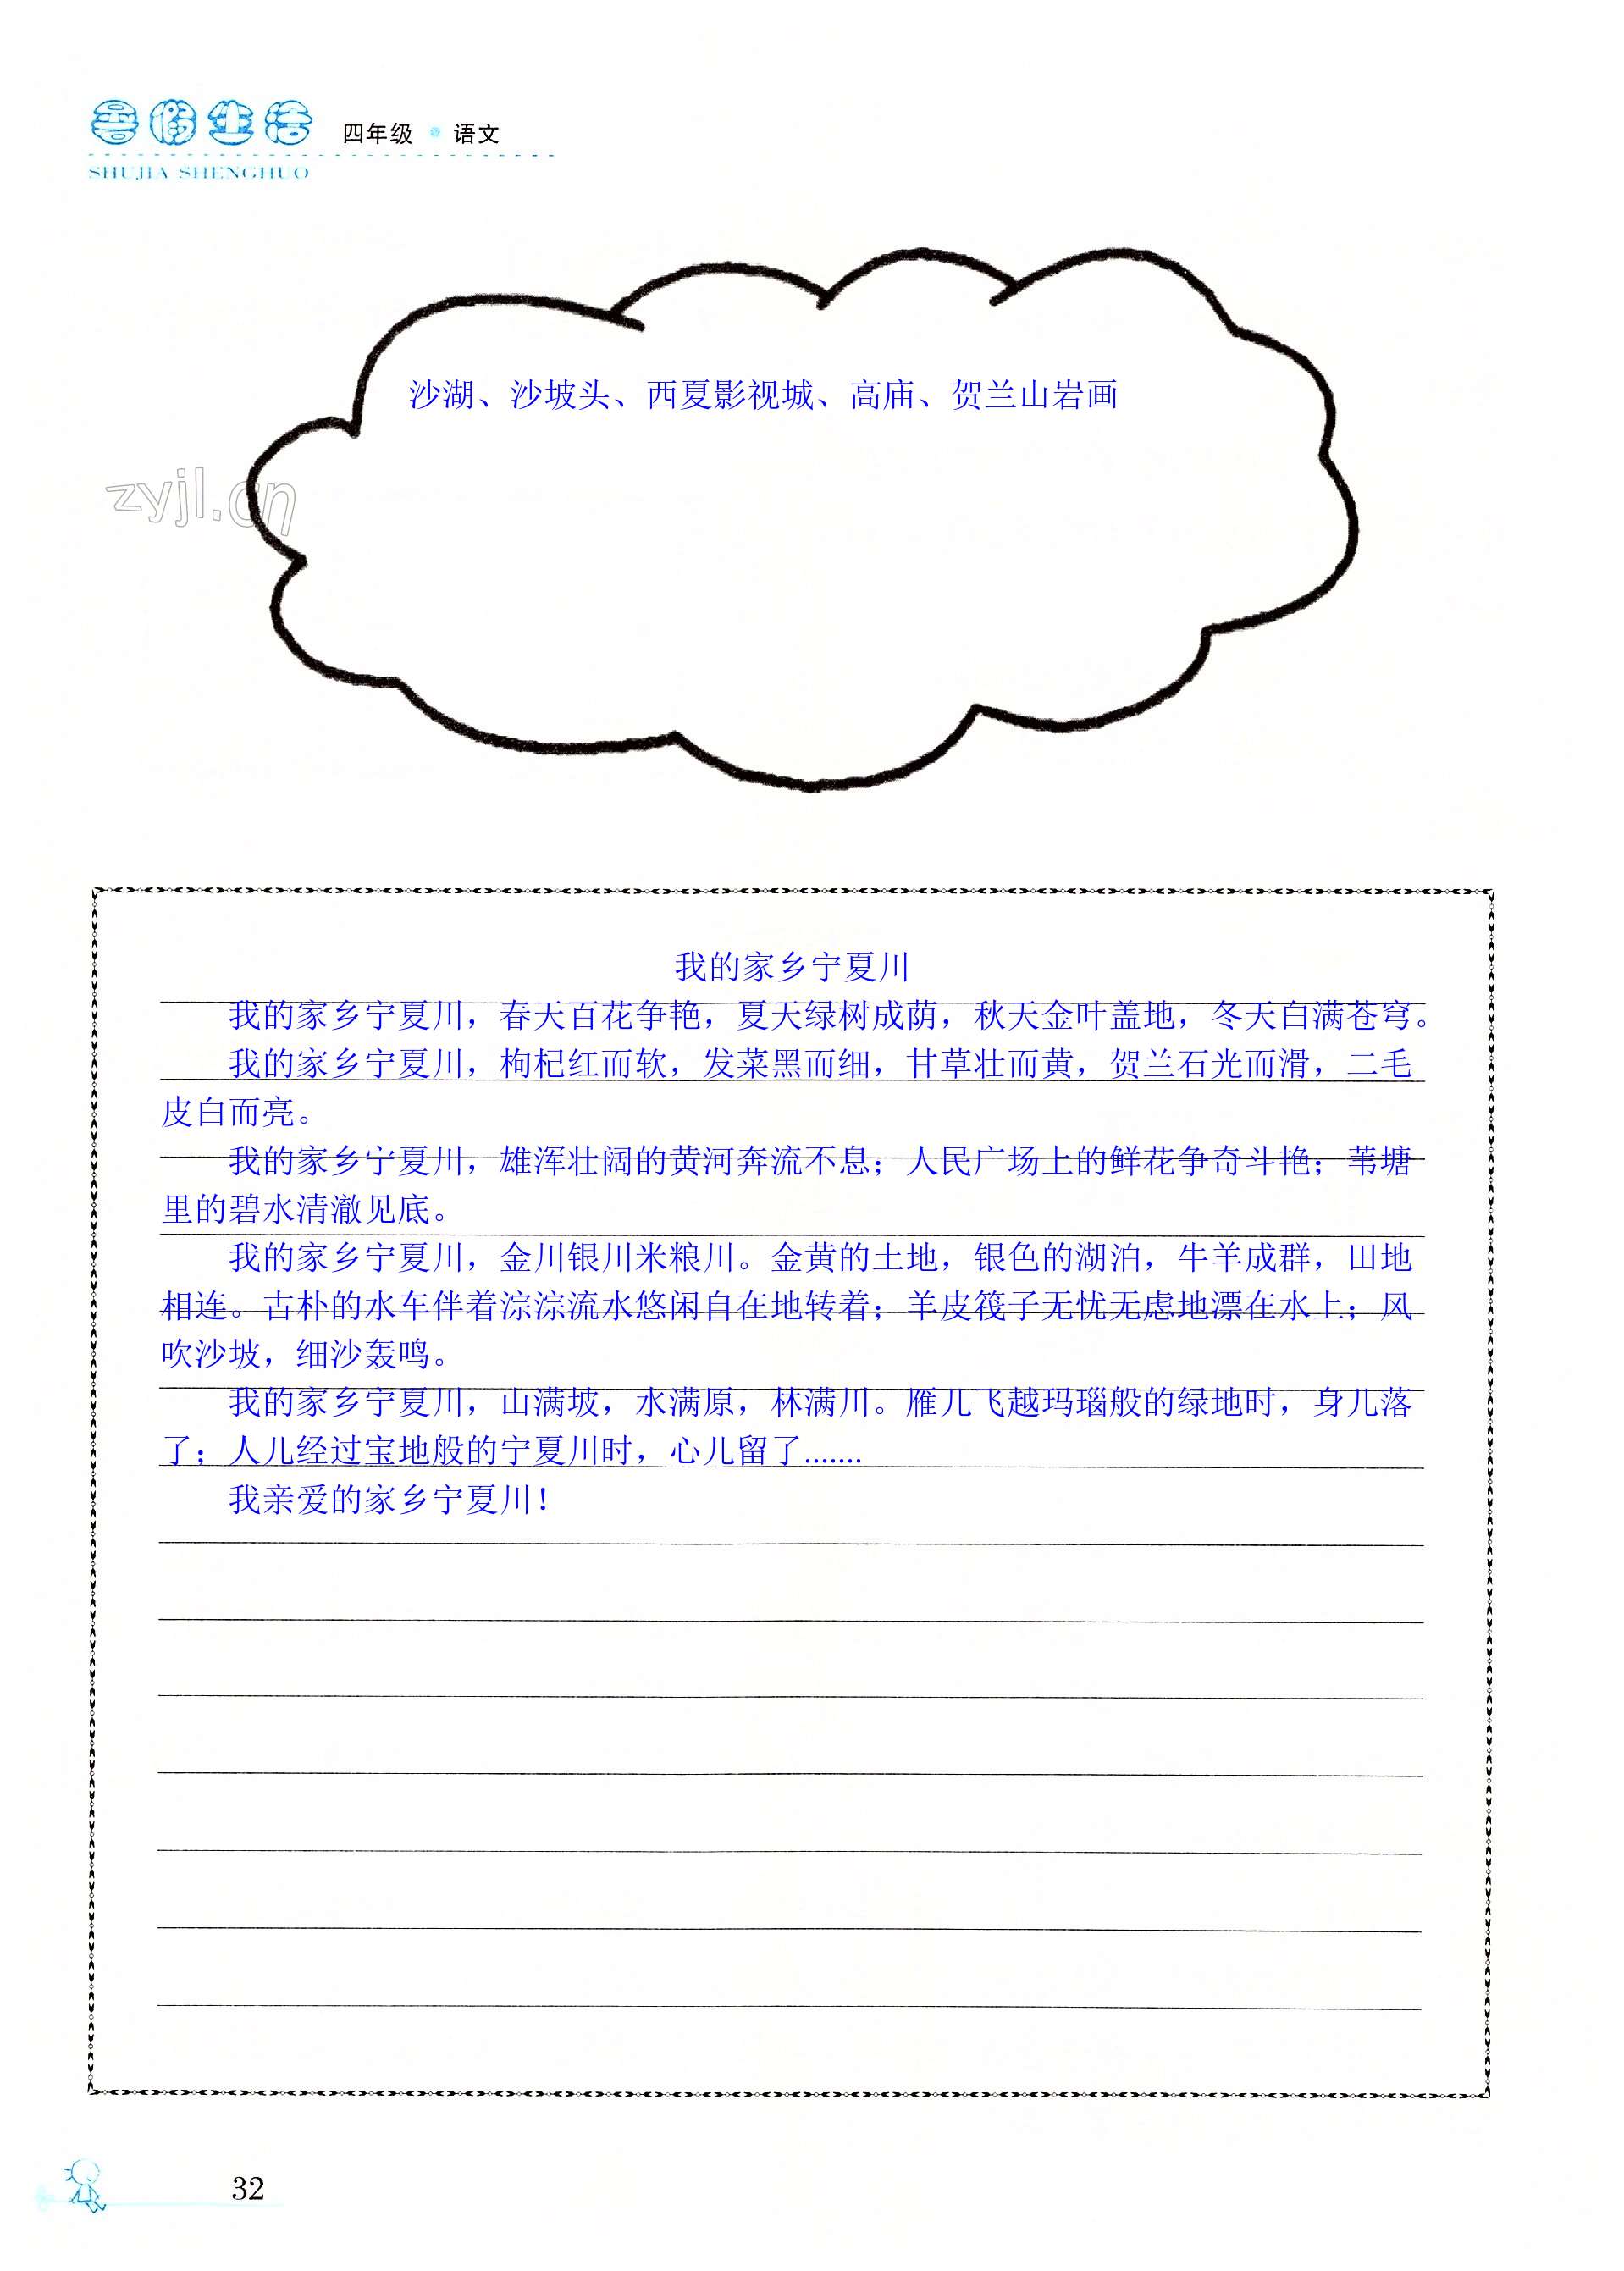 暑假生活 四年级 语文
SHUJIA SHENGHUO
沙湖、沙坡头、西夏影视城、高庙、贺兰山岩画
zyjl.cn
我的家乡宁夏川
我的家乡宁夏川，春天百花争艳，夏天绿树成荫，秋天金叶盖地，冬天白满苍穹。
我的家乡宁夏川，枸杞红而软，发菜黑而细，甘草壮而黄，贺兰石光而滑，二毛
皮白而亮。
我的家乡宁夏川，雄浑壮阔的黄河奔流不息；人民广场上的鲜花争奇斗艳；苇塘
里的碧水清澈见底。
我的家乡宁夏川，金川银川米粮川。金黄的土地，银色的湖泊，牛羊成群，田地
相连。古朴的水车伴着淙淙流水悠闲自在地转着；羊皮筏子无忧无虑地漂在水上；风
吹沙坡，细沙轰鸣。
我的家乡宁夏川，山满坡，水满原，林满川。雁儿飞越玛瑙般的绿地时，身儿落
了；人儿经过宝地般的宁夏川时，心儿留了.......
我亲爱的家乡宁夏川！
32